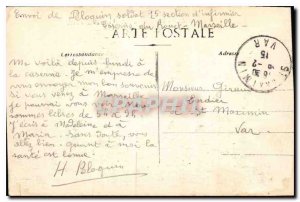 Envoi de Bloquin soldat 15 section d'infirmier
Marseille
CARTE POSTALE
Correspondance
Adresse
Me voilà depuis lundi à
la caserne. Je m'empresse de
vous envoyer mon bon souvenir
Si vous venez à Marseille
je pourrai vous voir nous
sommes libres de
J'écris à Madeleine et à
Maria. Sans doute, vous
allez bien. Quant à moi la
santé est bonne.
H Bloquin
Monsieur
St Maximin
Var
VAR